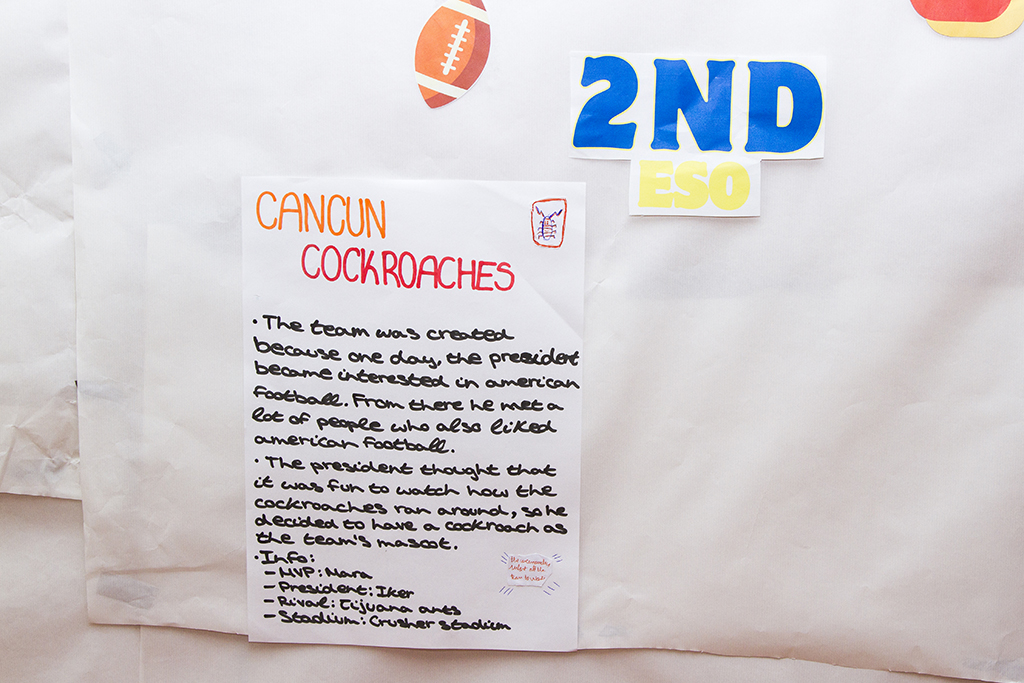 2ND
ESO
CANCUN
COCKROACHES
• The team was created
because one day, the president
became interested in american
football. From there he met a
lot of people who also liked
american football.
• The president thought that
it was fun to watch how the
cockroaches ran around, so he
decided to have a cockroach as
the team's mascot.
• Info:
- MVP: Mara
- President: Iker
- Rival: Tijuana ants
- Stadium: Crusher stadium